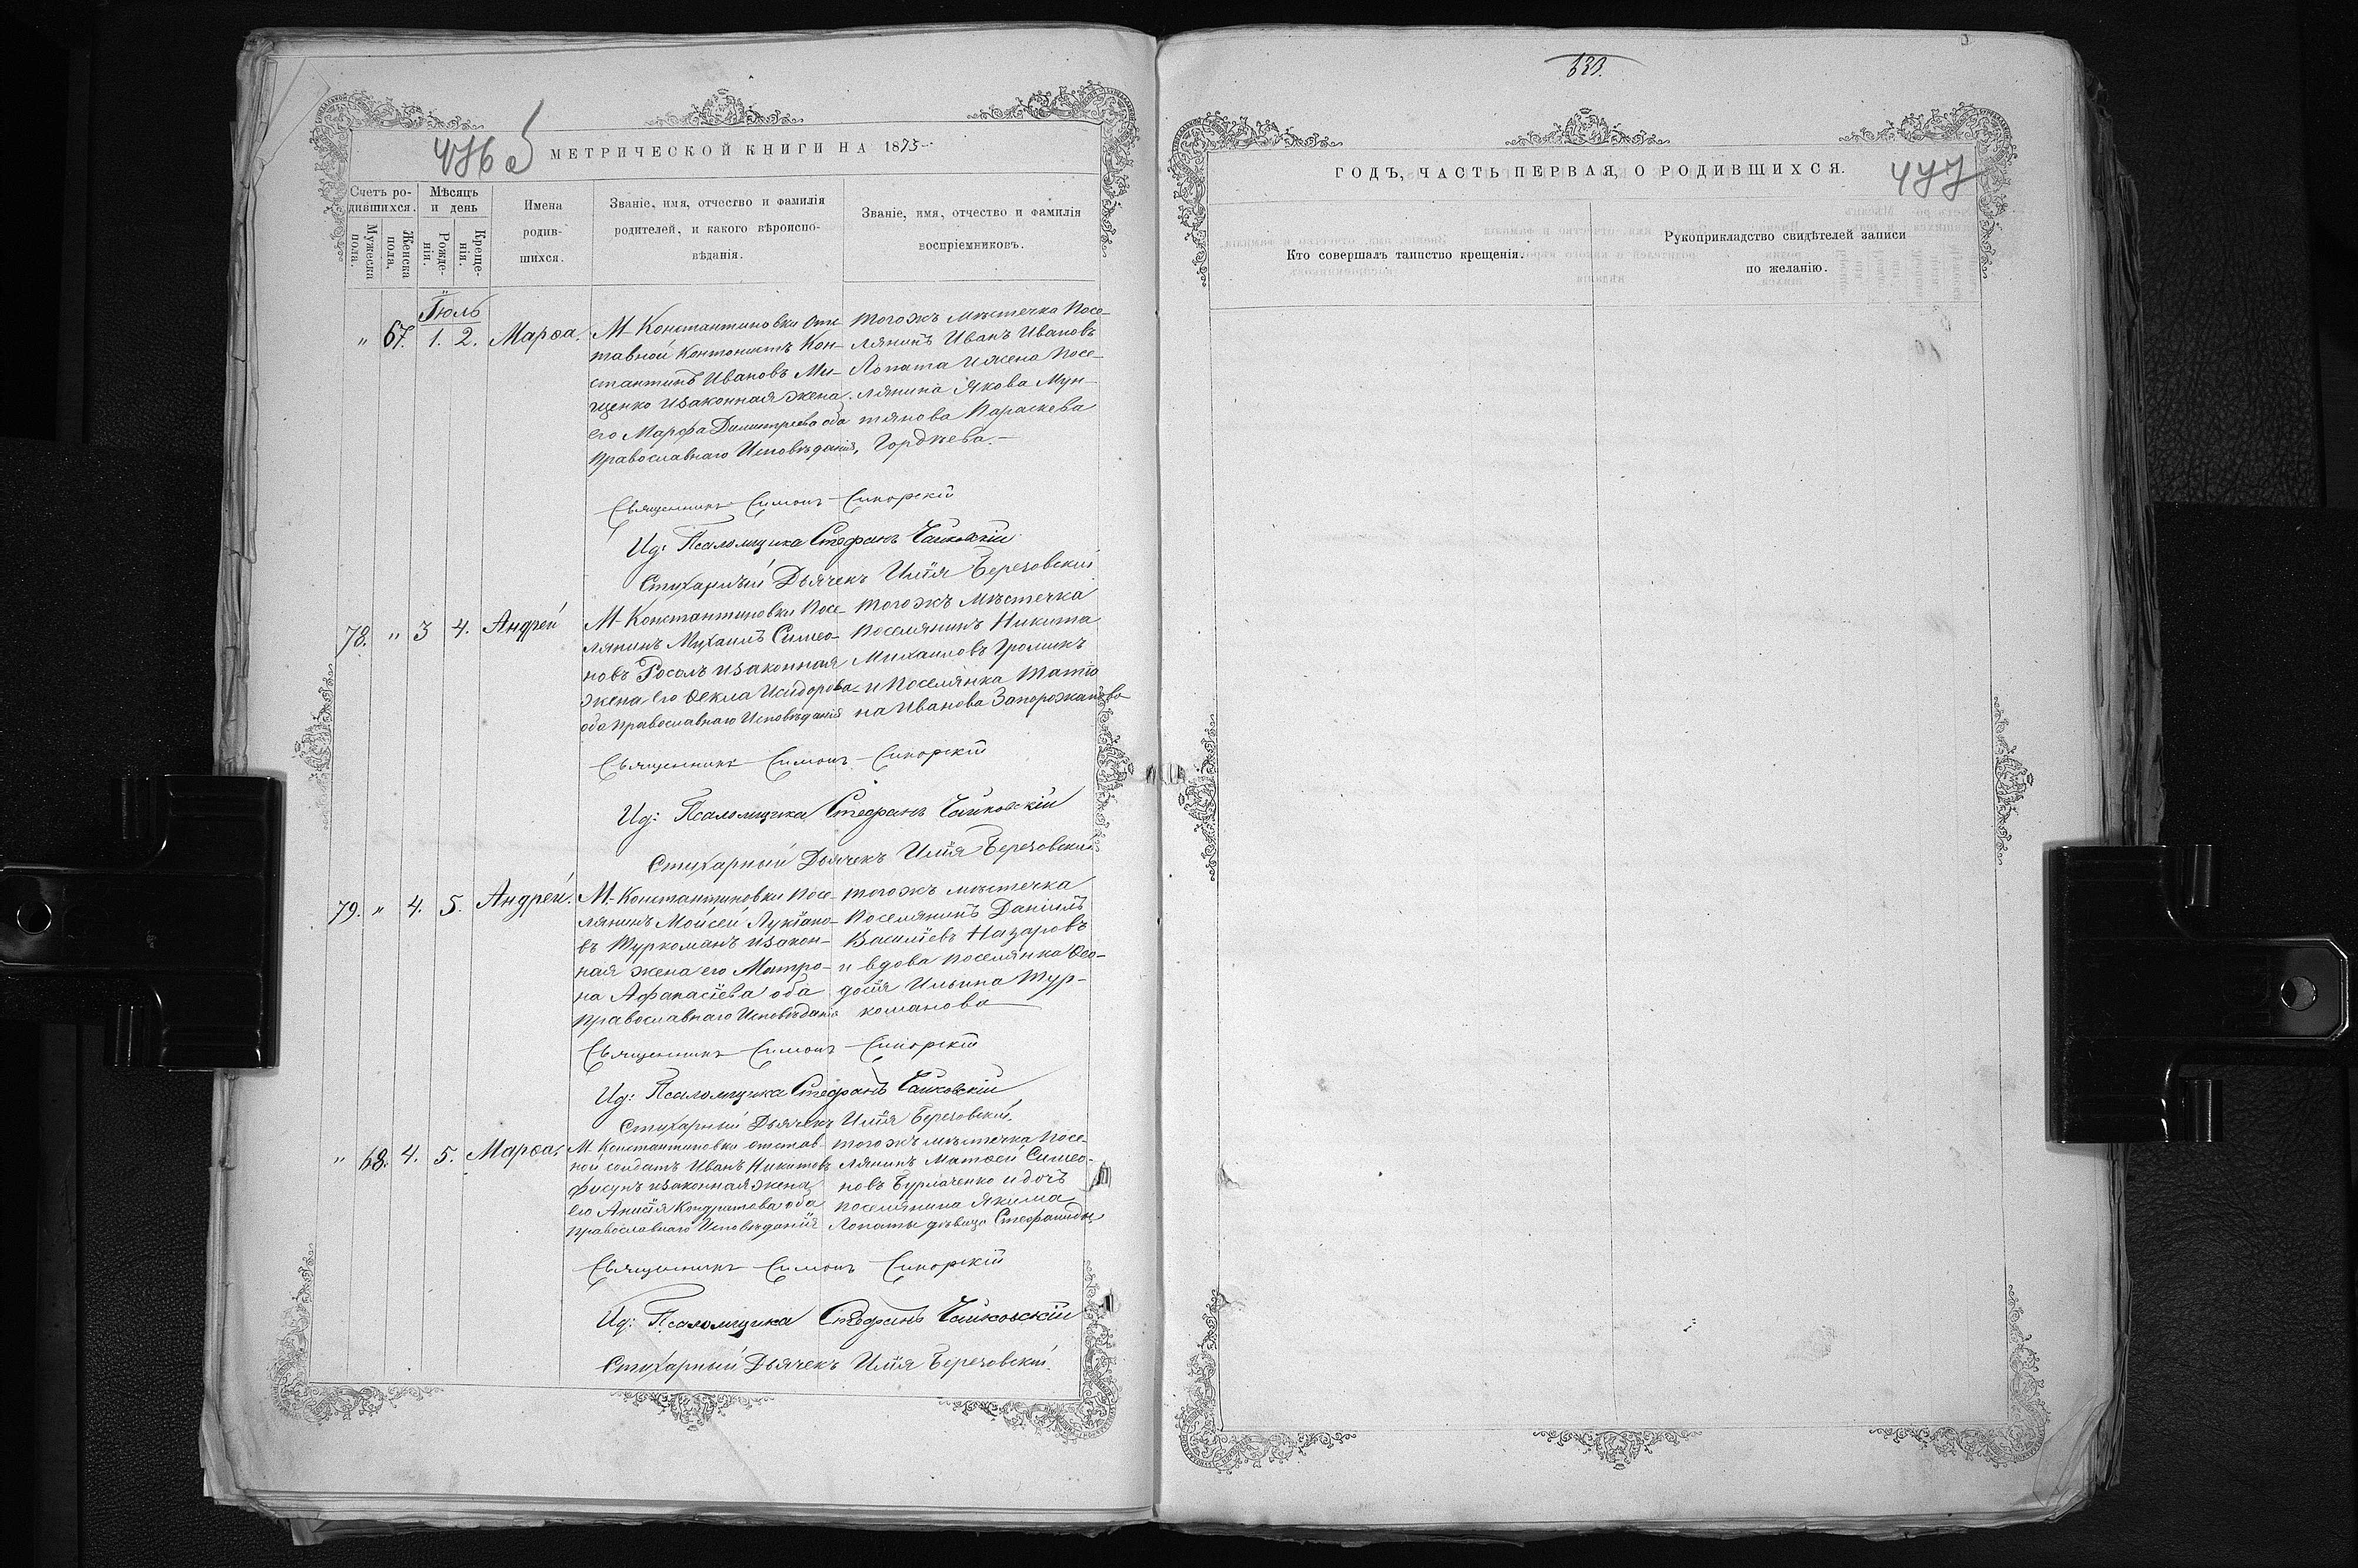 МЕТРИЧЕСКОЙ КНИГИ НА 1875
Счетъ ро-
дившихся.
Мужеска
пола.
Женска
пола.
Мѣсяцъ
и день
Рожде-
нія.
Креще-
нія.
Имена
родив-
шихся.
Званіе, имя, отчество и фамилія
родителей, и какого вѣроиспо-
вѣданія.
Званіе, имя, отчество и фамилія
воспріемниковъ.
Іюль
" 67. 1. 2. Марѳа.
М. Константиновки Отс
тавной Контонистъ Кон-
стантинъ Ивановъ Ми-
щенко и законная жена
его Марфа Димитреева оба
православнаго Исповѣданія,
тогожъ мѣстечка Посе-
лянинъ Иванъ Ивановъ
Лопата и жена Посе-
лянина Якова Мун-
тянова Параскева
Гордѣева.
Священникъ Симонъ Сикорскій
Ид: Псаломщика Стефанъ Чайковскій
Стихарный Дьячекъ Илія Березовскій
78. " 3 4. Андрей
М. Константиновки Посе-
лянинъ Михаилъ Симео-
новъ Росолъ и законная
жена его Ѳекла Исидорова
оба православнаго Исповѣданія
тогожъ мѣстечка
Поселянинъ Никита
Михаиловъ Громикъ
и Поселянка Татіа
на Иванова Запорожанова
Священникъ Симонъ Сикорскій
Ид: Псаломщика Стефанъ Чайковскій
Стихарный Дьячекъ Илія Березовскій
79. " 4. 5. Андрей.
М. Константиновки Посе-
лянинъ Мойсей Лукіано-
въ Туркоманъ и закон-
ная жена его Матро-
на Афанасіева оба
православнаго Исповѣданія
тогожъ мѣстечка
Поселянинъ Даніилъ
Василіевъ Назаровъ
и вдова поселянка Ѳео-
досія Ильина Тур-
команова
Священникъ Симонъ Сикорскій
Ид: Псаломщика Стефанъ Чайковскій
Стихарный Дьячекъ Илія Березовскій.
" 68. 4. 5. Марѳа.
М. Константиновки отстав-
ной солдатъ Иванъ Никитовъ
Фисунъ и законная жена
его Анисія Кондратова оба
православнаго Исповѣданія
тогожъ мѣстечка Посе-
лянинъ Матѳей Симео-
новъ Бурлаченко и дочь
поселянина Якима
Лопаты дѣвица Стефанида
Священникъ Симонъ Сикорскій
Ид: Псаломщика Стефанъ Чайковскій
Стихарный Дьячекъ Илія Березовскій.
ГОДЪ, ЧАСТЬ ПЕРВАЯ, О РОДИВШИХСЯ.
477
Кто совершалъ таинство крещенія.
Рукоприкладство свидѣтелей записи
по желанію.